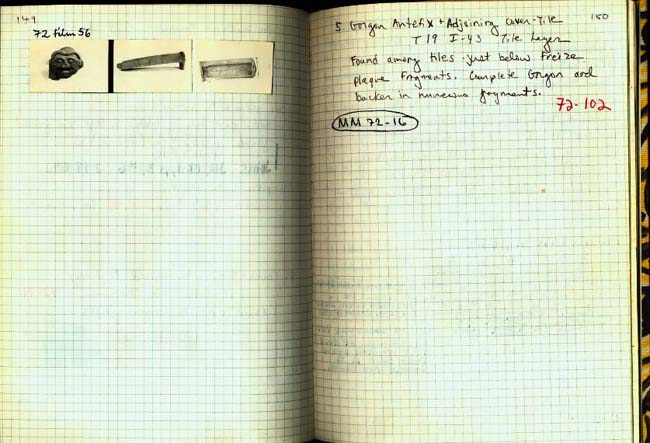 149
72 film 56
150
5. Gorgon Antefix + Adjoining Cover-Tile
T 19 I-43 Tile Layer
Found among tiles just below Freize
plaque fragments. Complete Gorgon and
backer in numerous fragments.
72-102
MM 72-16